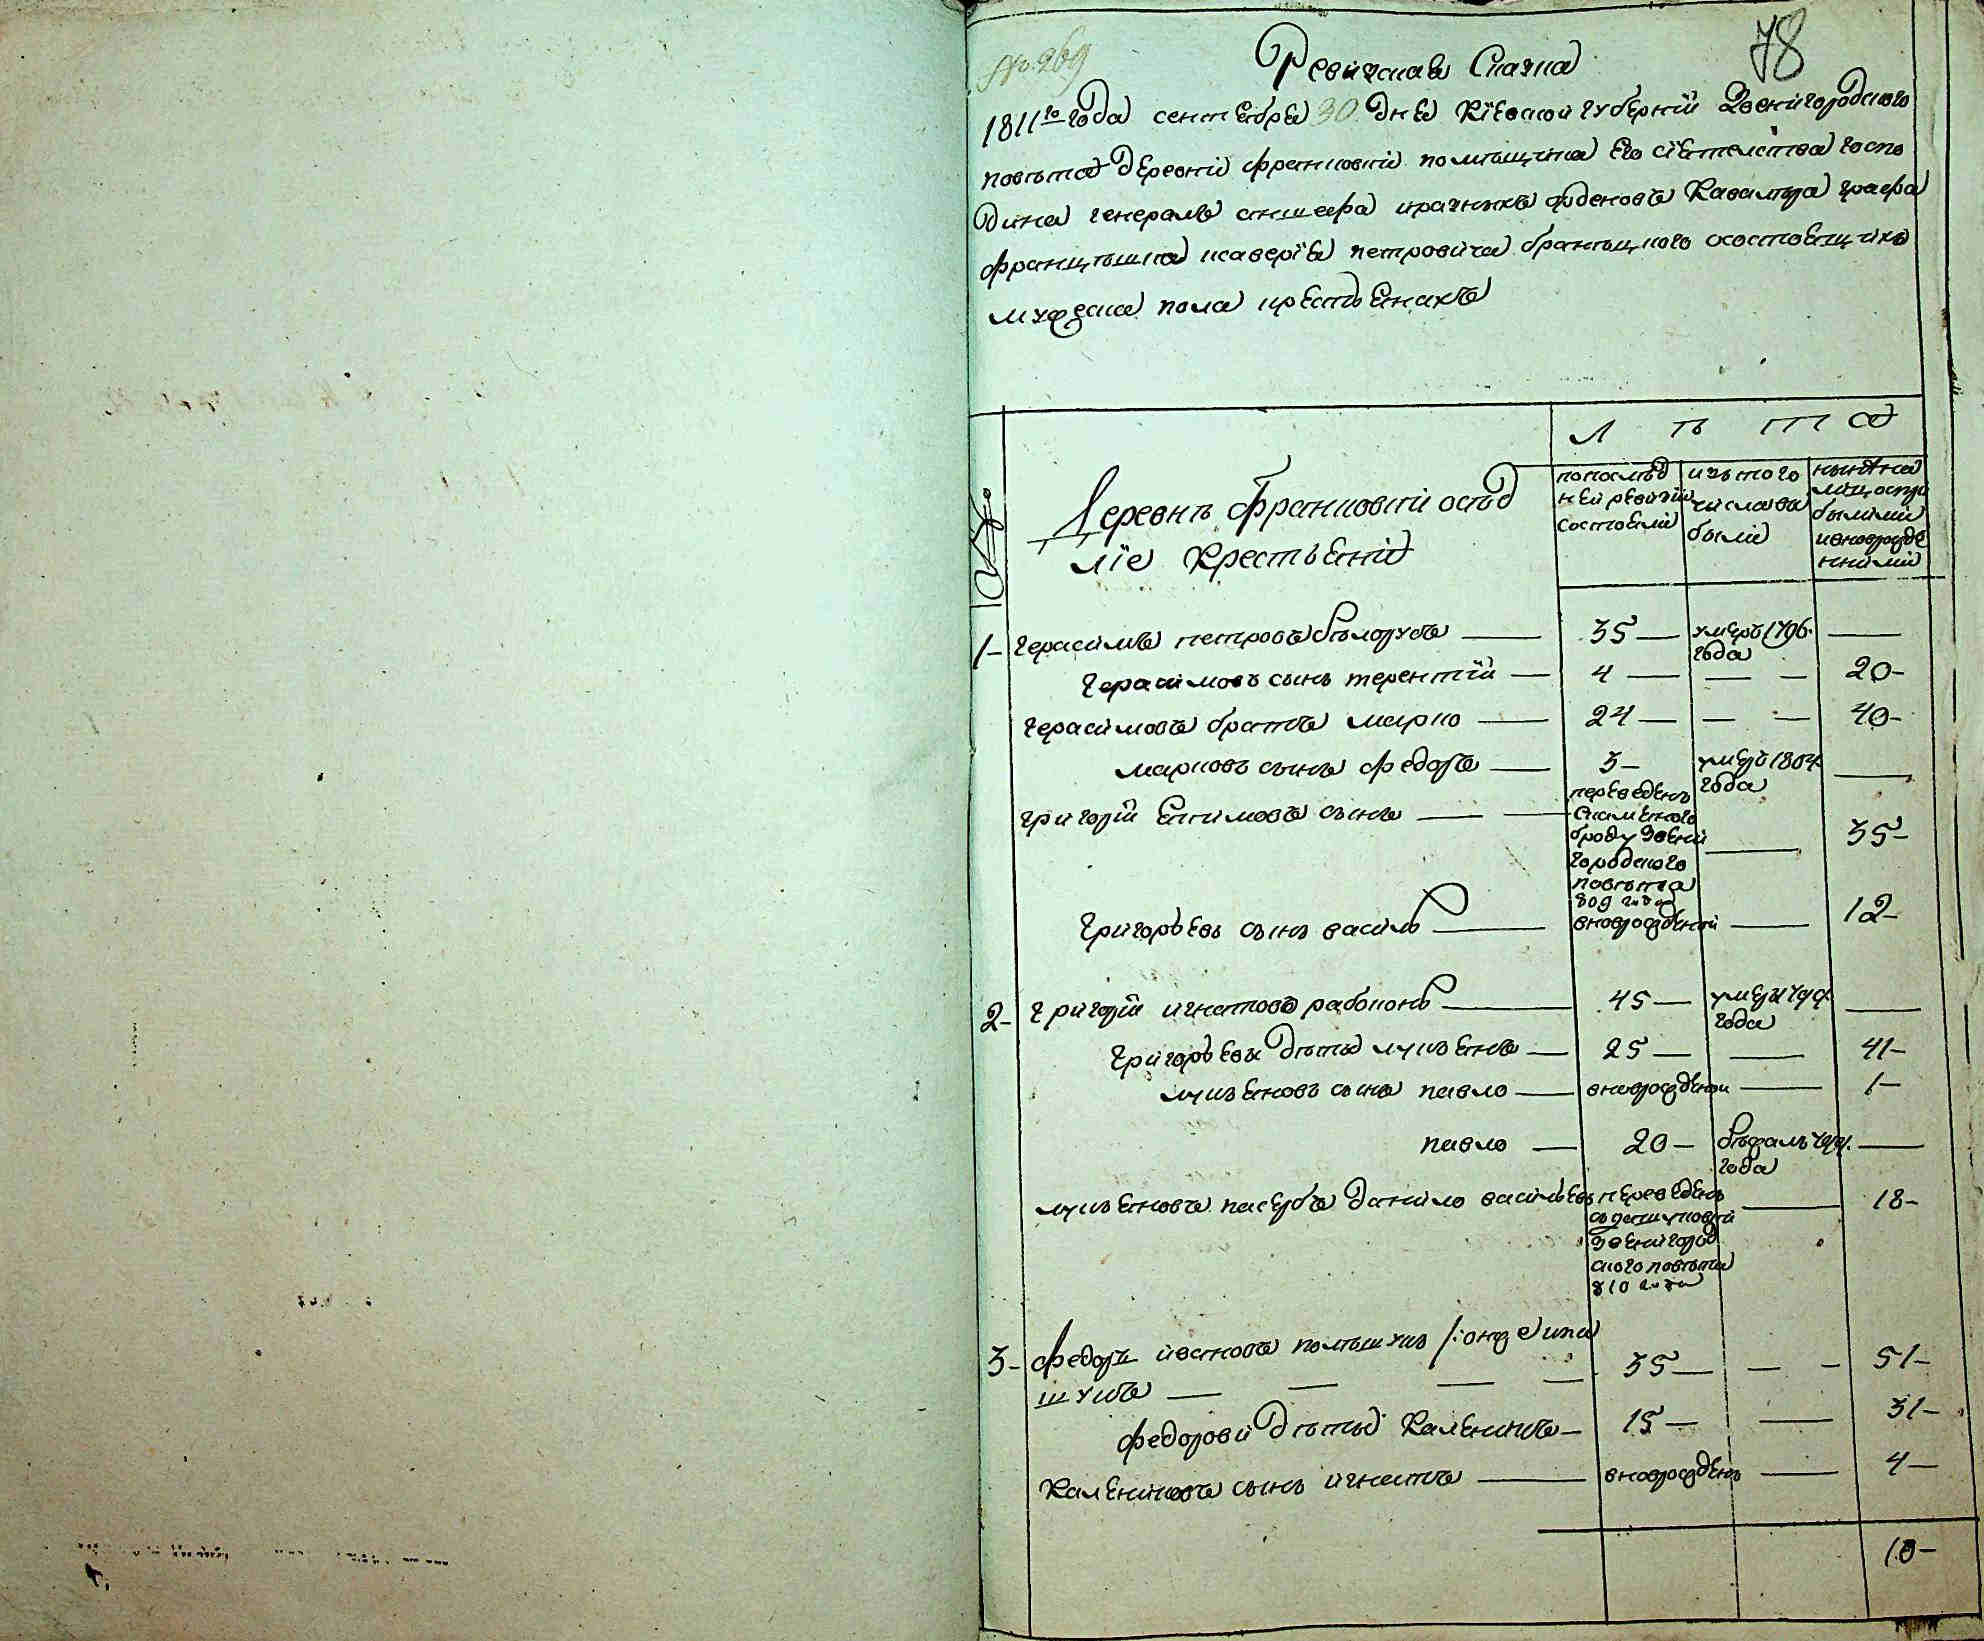 № 269
78
Ревизская Сказка
1811го года сентебря 30 дня Кіевской губерніи Звенигородского
повѣта деревни Франковки помѣщика Его сіятелства госпо
дина генералъ аншефа и разныхъ орденовъ Кавалера графа
Францѣшка ксаверія петровича браницкого о состоящихъ
мужеска пола крестьянахъ
Л ѣ т а
Деревнѣ Франковки осѣд
ліе Крестьяни
по послѣд
ней ревизіи
состояли
изъ того
числа вы
были
нынѣ на
лицо
были
и новорожде
нними
1- герасимъ петровъ бѣлоусъ — 35 — умеръ 1796.
года —
герасимовъ сынъ терентій — 4 — — — 20-
герасимовъ братъ марко — 24 — — — 40-
марковъ сынъ федоръ — 3- умеръ 1804
года —
григорій Екимовъ сынъ — — переведенъ
с каменного
броду Звени
городского
повѣта
809 года — 35-
григорьевъ сынъ василь — новорожденой — 12-
2- григорій игнатовъ — 45 — умеръ
года —
григорьевы дѣты лукьянъ — 25 — — 41-
лукьяновъ сынъ павло — новорожденой — 1-
павло — 20 — бѣжалъ
года —
лукьяновъ пасербъ данило васильевъ переведенъ
звенигород
ского повѣта
810 года — 18-
3- федоръ ивановъ
— — — — 35 — — - 51-
федорови дѣты Каленикъ — 15 — — 31-
Калениковъ сынъ игнатъ — новорожденъ — 4-
10-